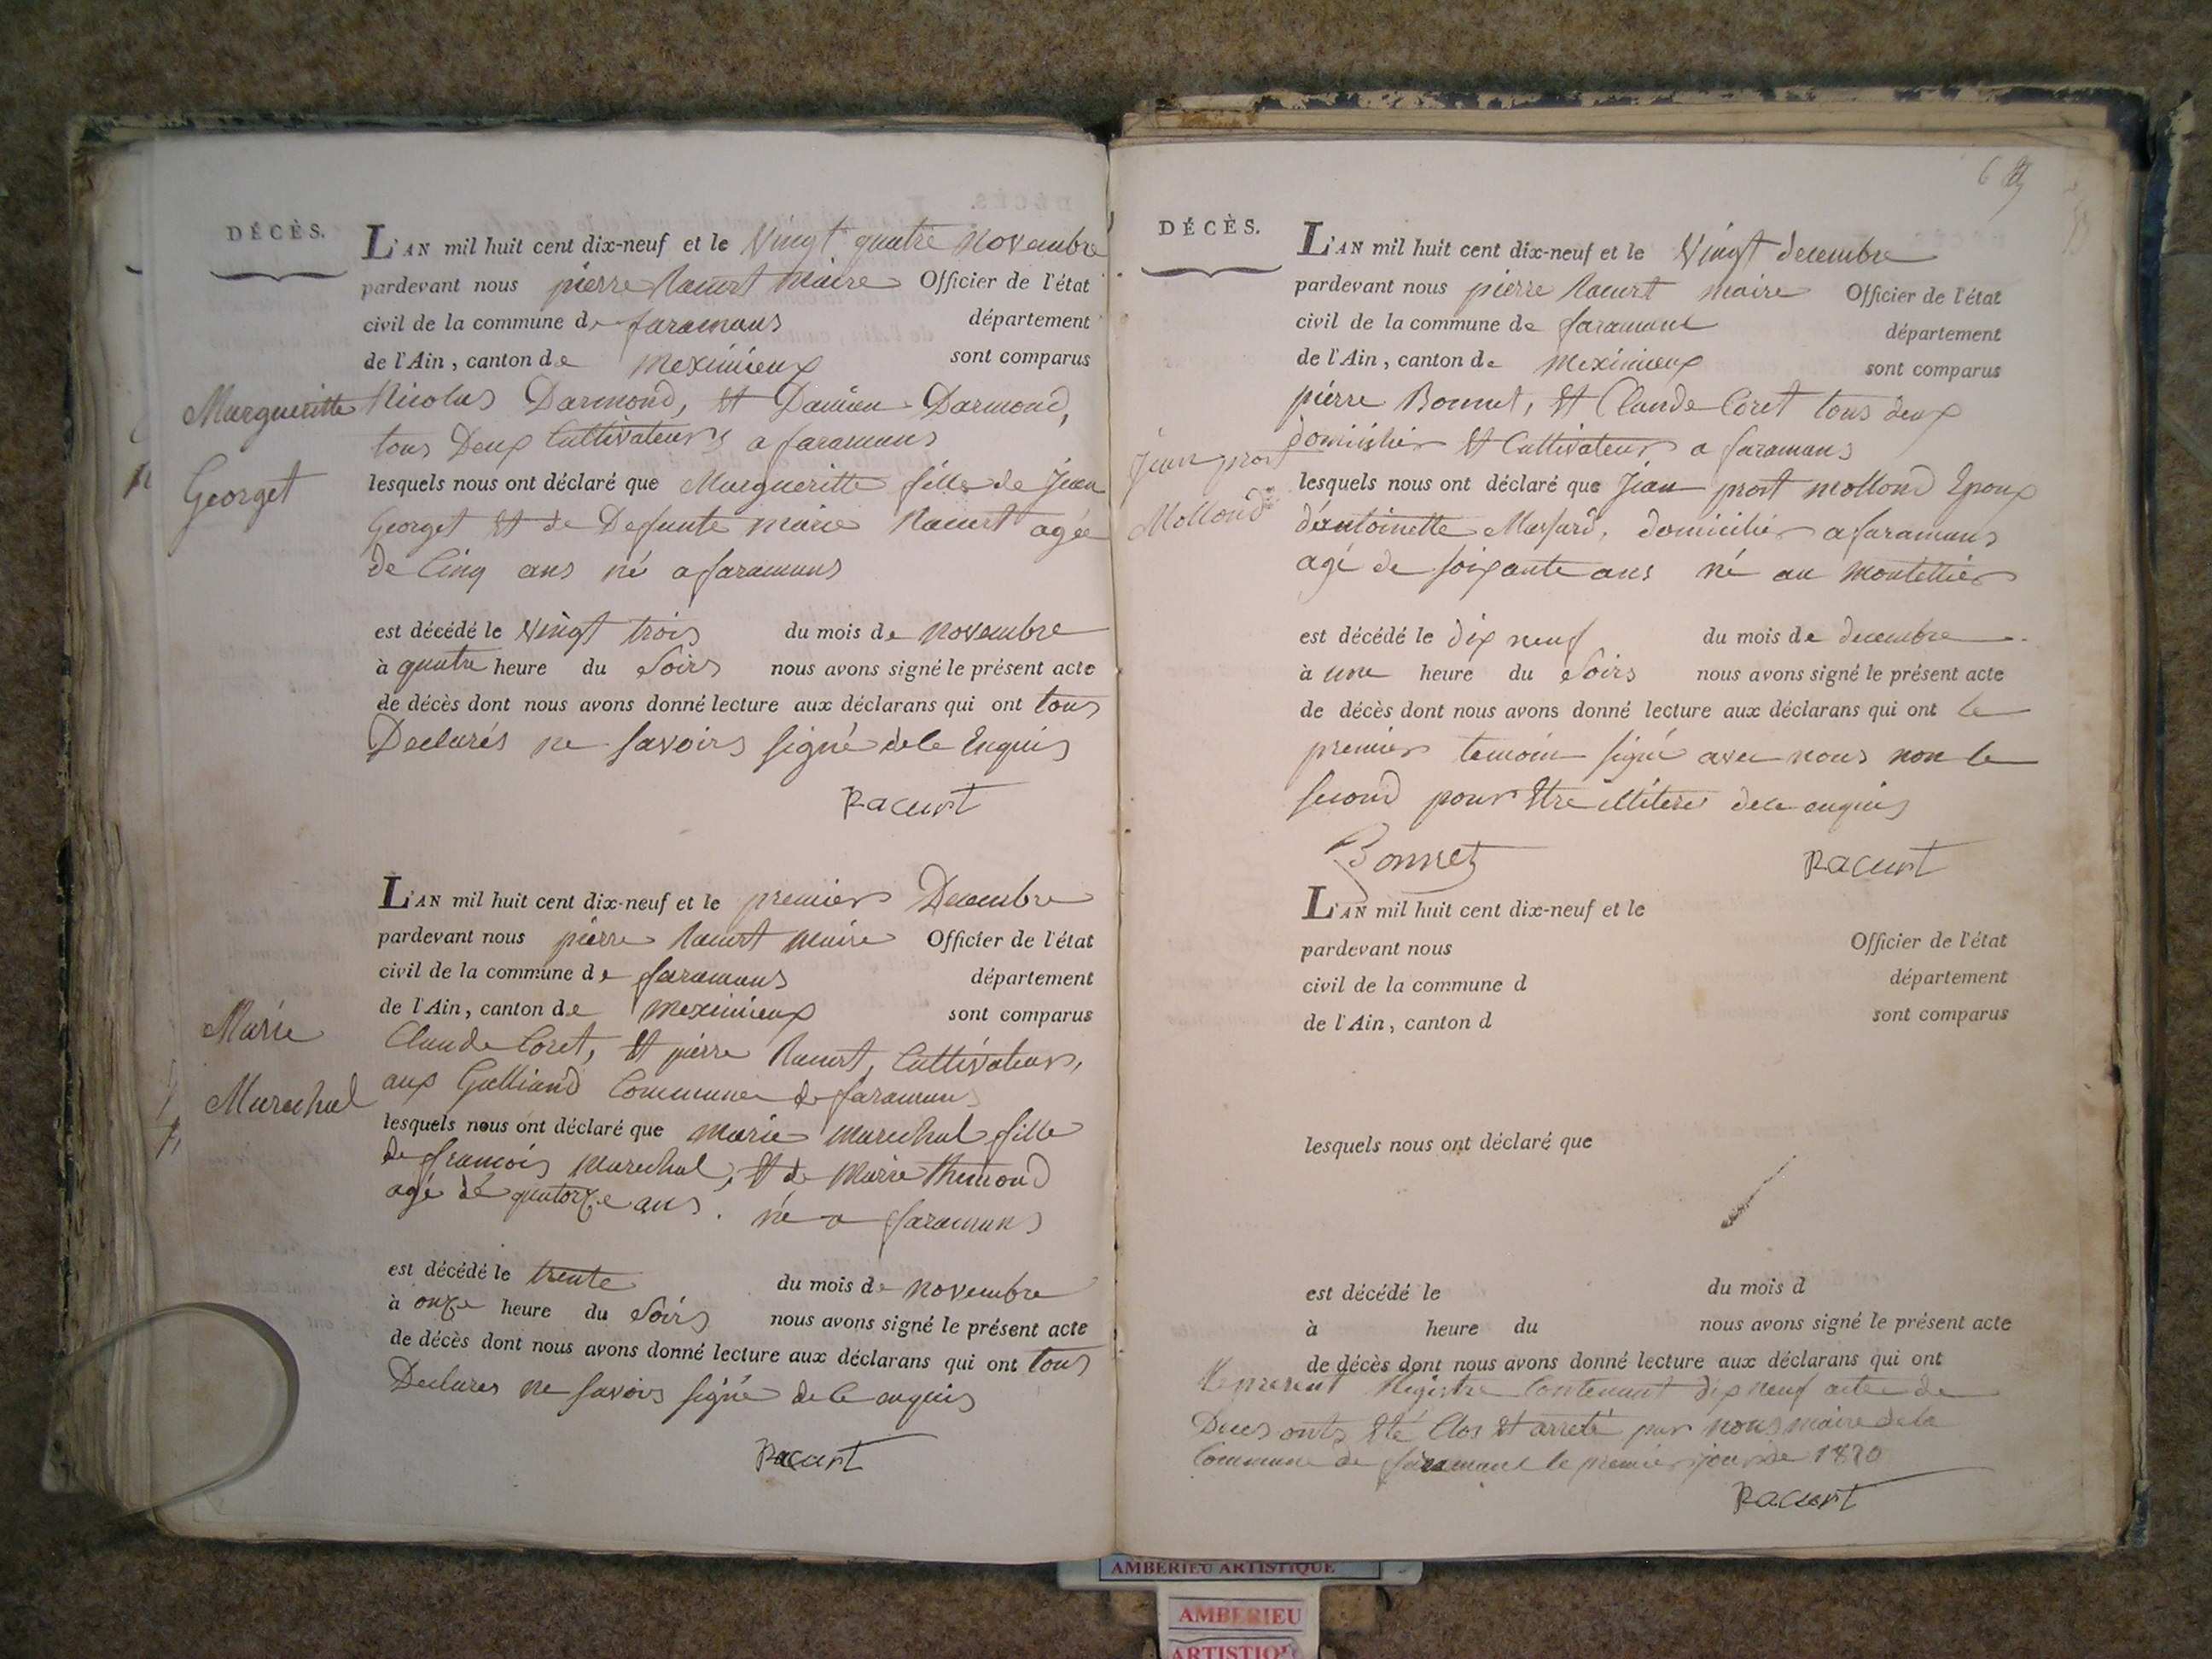 DÉCÈS.
L'AN mil huit cent dix-neuf et le Vingt quatre Novembre
pardevant nous pierre Racurt Maire Officier de l'état
civil de la commune de faramans département
de l'Ain, canton de Meximieux sont comparus
Nicolas Darmond, Et Damien Darmond,
tous Deux Cultivateurs a faramans
Margueritte
Georget
lesquels nous ont déclaré que Margueritte fille de Jean
Georget Et de Defunte marie Racurt agée
de Cinq ans né a faramans
est décédé le Vingt trois du mois de Novembre
à quatre heure du Soirs nous avons signé le présent acte
de décès dont nous avons donné lecture aux déclarans qui ont tous
Declarés ne savoirs signé dele Enquis
Racurt
L'AN mil huit cent dix-neuf et le premier Decembre
pardevant nous pierre Racurt Maire Officier de l'état
civil de la commune de faramans département
de l'Ain, canton de Meximieux sont comparus
Claude Coret, Et pierre Racurt, Cultivateurs,
aux Galliand Commune de faramans
Marie
Marechal
lesquels nous ont déclaré que Marie Marechal fille
de francois Marechal, Et de Marie
agé de quatorze ans. né a faramans
est décédé le trente du mois de Novembre
à onze heure du Soirs nous avons signé le présent acte
de décès dont nous avons donné lecture aux déclarans qui ont tous
Declares ne savoirs signé dele enquis
Racurt
DÉCÈS.
L'AN mil huit cent dix-neuf et le Vingt decembre
pardevant nous pierre Racurt maire Officier de l'état
civil de la commune de faramans département
de l'Ain, canton de Meximieux sont comparus
pierre Bonnet, Et Claude Coret tous deux
domicilier Et Cultivateur a faramans
Jean prost
Mollond
lesquels nous ont déclaré que Jean prost mollond Epoux
d'antoinette domicilier a faramans
agé de soixante ans né au Montellier
est décédé le dix neuf du mois de decembre
à une heure du Soirs nous avons signé le présent acte
de décès dont nous avons donné lecture aux déclarans qui ont le
premier temoin signé avec nous non le
second pour Etre illiteré dele enquis
Bonnet Racurt
L'AN mil huit cent dix-neuf et le
pardevant nous Officier de l'état
civil de la commune d département
de l'Ain, canton d sont comparus
lesquels nous ont déclaré que
est décédé le du mois d
à heure du nous avons signé le présent acte
de décès dont nous avons donné lecture aux déclarans qui ont
Le present Registre Contenant dix neuf acte de
Deces onts Eté Clos Et arreté par nous maire dela
Commune de faramans le premier jour de 1820
Racurt
AMBERIEU ARTISTIQUE
AMBERIEU
ARTISTIQUE